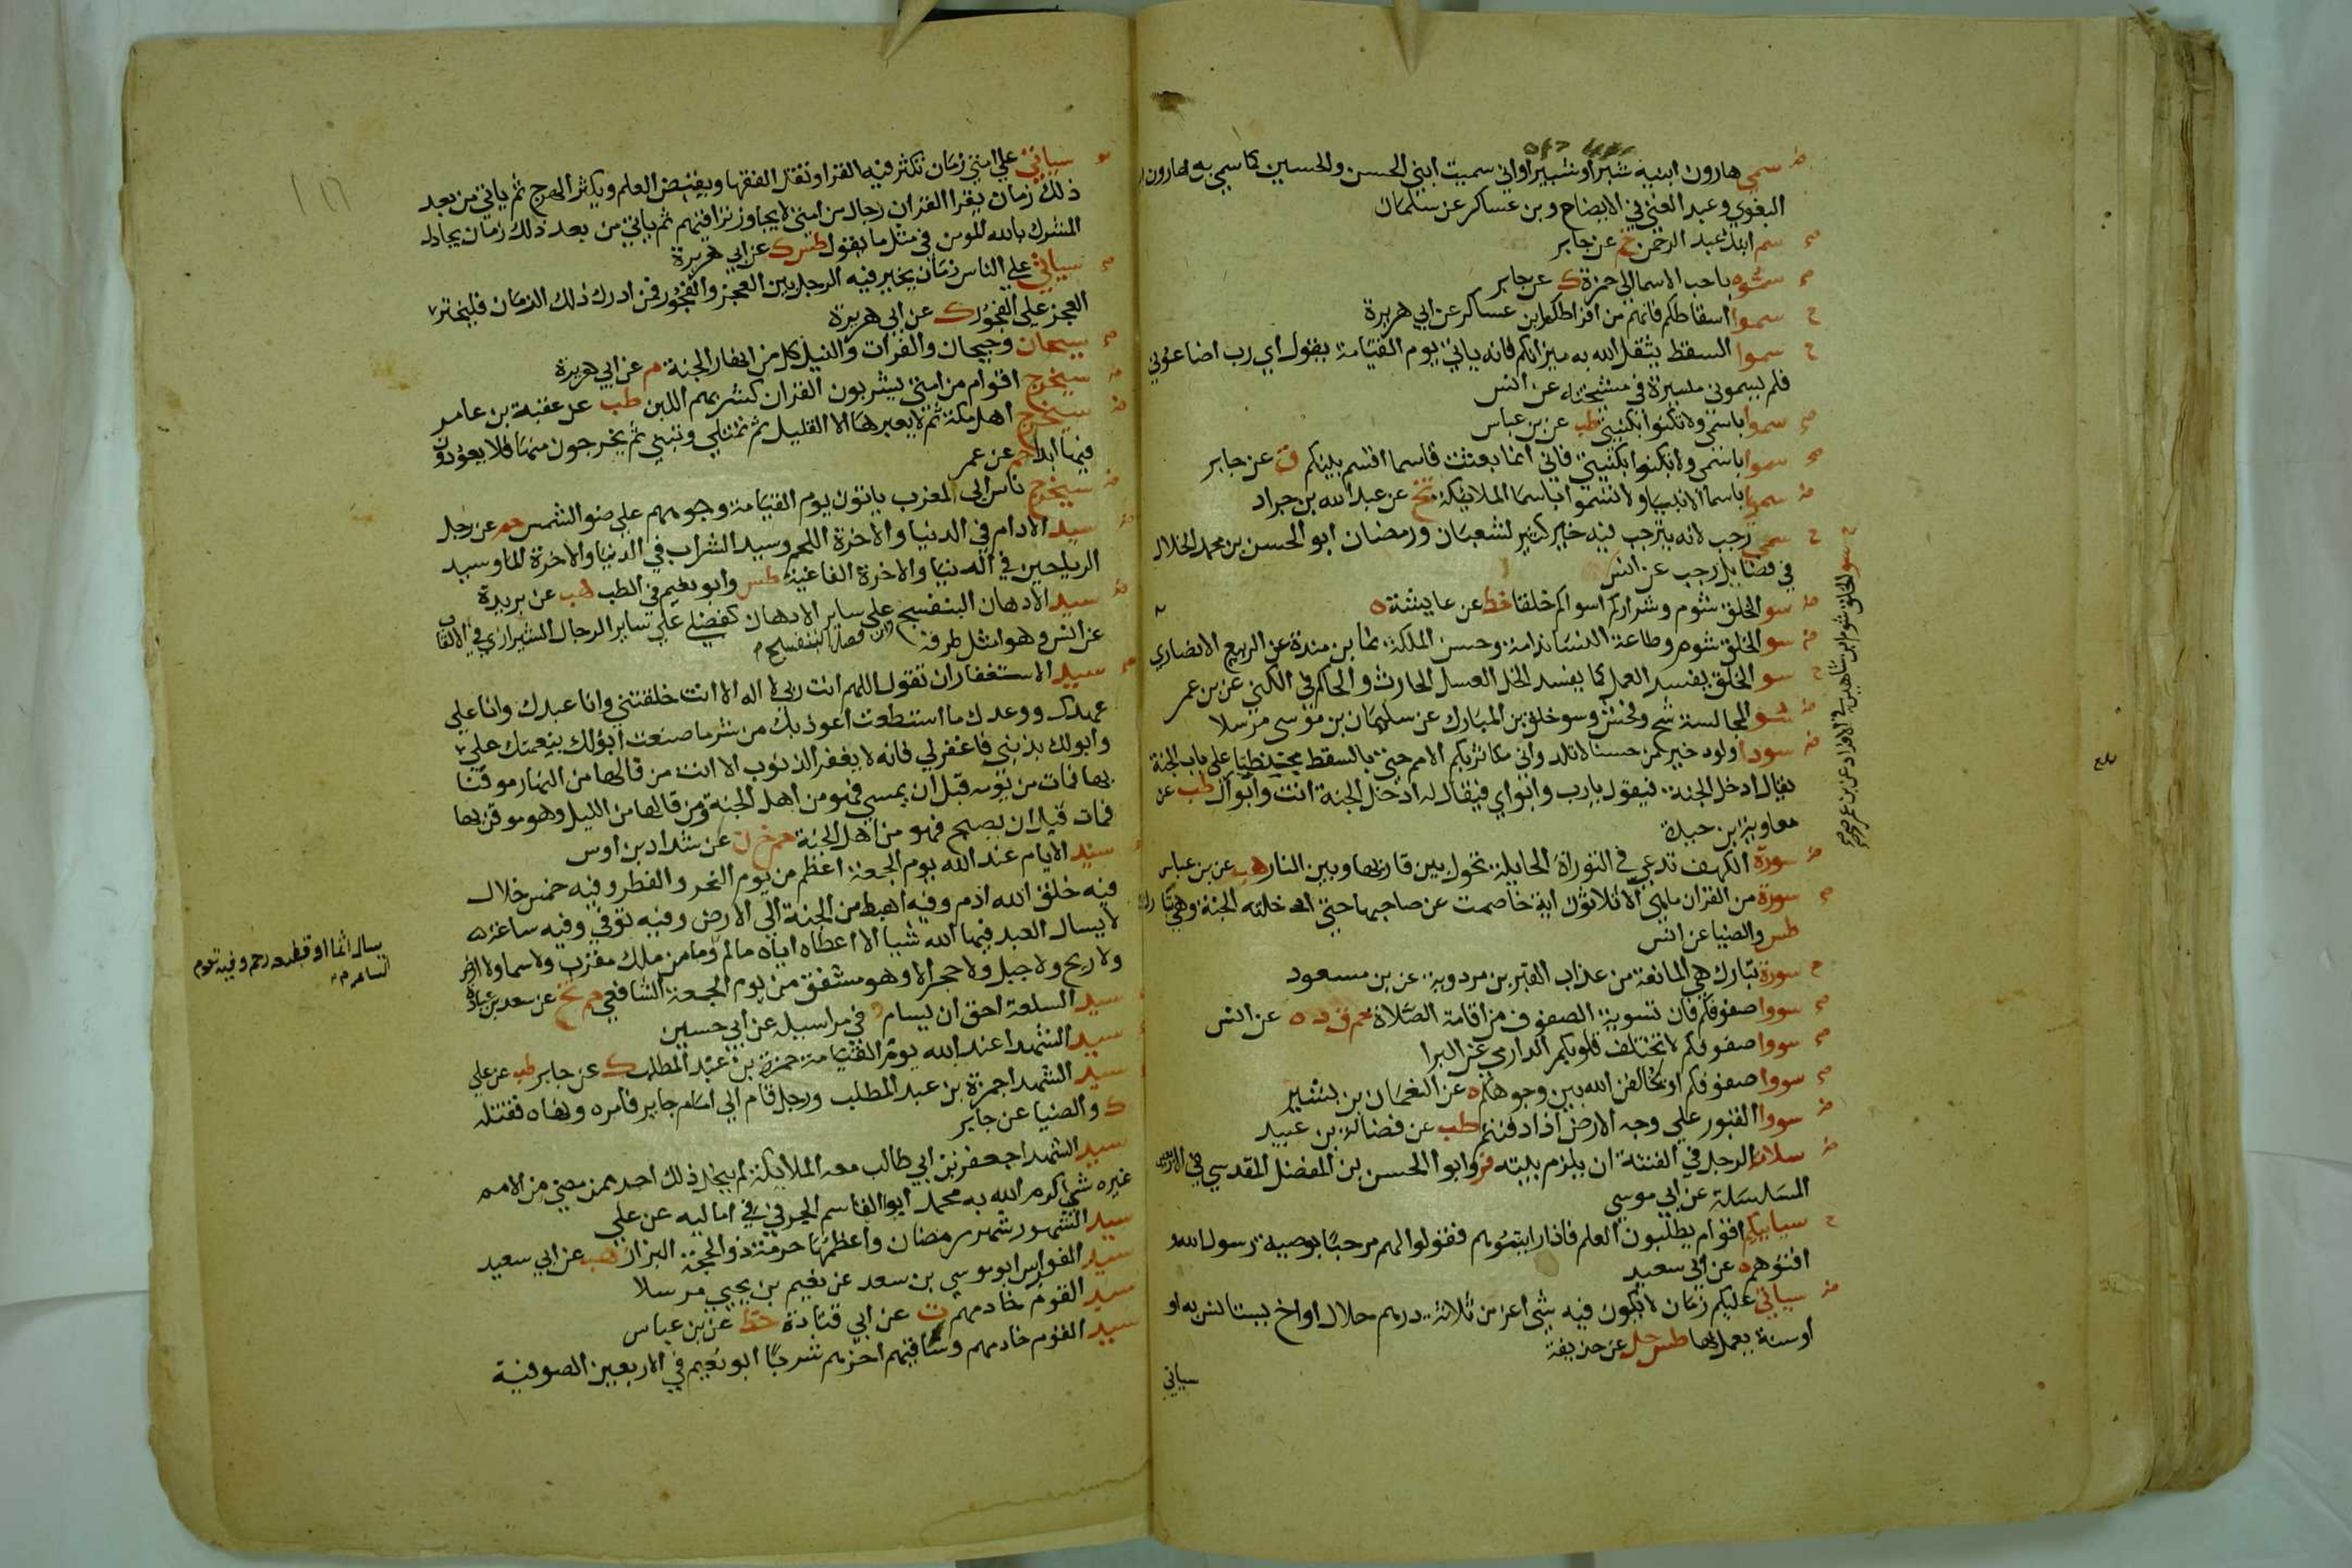 سمي هارون ابنيه شبرا وشبيرا واني سميت ابني الحسن والحسين كما سمي به هارون
البغوي وعبد الغني في الايضاح وبن عساكر عن سلمان
سم ابنك عبد الرحمن خ عن جابر
سموه باحب الاسما الي حمزة ك عن جابر
سموا اسقاطكم فانهم من افراطكم ابن عساكر عن ابي هريرة
سموا السقط يثقل الله به ميزانكم فانه ياتي يوم القيامة يقول اي رب اضاعوني
فلم يسموني ميسرة في مشيخته عن انس
سموا باسمي ولا تكنوا بكنيتي طب عن بن عباس
سموا باسمي ولا تكنوا بكنيتي فاني انما بعثت قاسما اقسم بينكم ق عن جابر
سموا باسما الانبيا ولا تسموا باسما الملايكة تخ عن عبد الله بن جراد
سمي رجب لانه يترجب فيه خير كثير لشعبان ورمضان ابو الحسن بن محمد الخلال
في فضايل رجب عن انس
سو الخلق شوم وشراركم اسواكم خلقا خط عن عايشة
سو الخلق شوم وطاعة النسا ندامة وحسن الملكة نما بن مندة عن الربيع الانصاري
سو الخلق يفسد العمل كما يفسد الخل العسل الحارث والحاكم في الكني عن بن عمر
سو الخلق شوم ابن شاهين في الافراد عن بن عمر
سو المجالسة شح وفحش وسو خلق بن المبارك عن سليمان بن موسى مرسلا
سودا ولود خير من حسنا لا تلد واني مكاثر بكم الامم حتي بالسقط محبنطيا علي باب الجنة
يقال ادخل الجنة فيقول يارب وابواي فيقال له ادخل الجنة انت وابواك طب عن
معاوية بن حيدة
سورة الكهف تدعي في التوراة الحايلة تحول بين قاريها وبين النار هب عن بن عباس
سورة من القران ماهي الا ثلاثون اية خاصمت عن صاحبها حتي ادخلته الجنة وهي تبارك
طس والضيا عن انس
سورة تبارك هي المانعة من عذاب القبر بن مردوية عن بن مسعود
سووا صفوفكم فان تسوية الصفوف من اقامة الصلاة حم ق د ه عن انس
سووا صفوفكم لا تختلف قلوبكم الدارمي عن البرا
سووا صفوفكم او ليخالفن الله بين وجوهكم ه عن النعمان بن بشير
سووا القبور علي وجه الارض اذا دفنتم طب عن فضالة بن عبيد
سلامة الرجل في الفتنة ان يلزم بيته فر وابو الحسن بن المفضل المقدسي في الاربعين
المسلسلة عن ابي موسي
سياتيكم اقوام يطلبون العلم فاذا رايتموهم فقولوا لهم مرحبا بوصية رسول الله
افتوهم ه عن ابي سعيد
سياتي عليكم زمان لا يكون فيه شي اعز من ثلاثة درهم حلال او اخ يستانس به او
او سنة يعمل بها طس حل عن حذيفة
سياتي
سياتي علي امتي زمان تكثر فيه القرا وتقل الفقها ويقبض العلم ويكثر الهرج ثم ياتي من بعد
ذلك زمان يقرا القران رجال من امتي لا يجاوز تراقيهم ثم ياتي من بعد ذلك زمان يجادل
المشرك بالله المومن في مثل ما يقول طس ك عن ابي هريرة
سياتي علي الناس زمان يخير فيه الرجل بين العجز والفجور فمن ادرك ذلك الزمان فليختر
العجز علي الفجور ك عن ابي هريرة
سيحان وجيحان والفرات والنيل كل من انهار الجنة م عن ابي هريرة
سيخرج اقوام من امتي يشربون القران كشربهم اللبن طب عن عقبة بن عامر
سيخرج اهل مكة ثم لا يعبرها الا القليل ثم تمتلي وتبني ثم يخرجون منها فلا يعودون
فيها ابدا حم عن عمر
سيخرج ناس الي المغرب ياتون يوم القيامة وجوههم علي ضو الشمس حم عن رجل
سيد الادام في الدنيا والاخرة اللحم وسيد الشراب في الدنيا والاخرة الما وسيد
الرياحين في الدنيا والاخرة الفاغية طس وابو نعيم في الطب هب عن بريدة
سيد الادهان البنفسج وان فضل البنفسج علي ساير الادهان كفضلي علي ساير الرجال الشيرازي في الالقاب
عن انس وهو امثل طرقه
سيد الاستغفار ان تقول اللهم انت ربي لا اله الا انت خلقتني وانا عبدك وانا علي
عهدك ووعدك ما استطعت اعوذ بك من شر ما صنعت ابو لك بنعمتك علي
وابو لك بذنبي فاغفر لي فانه لا يغفر الذنوب الا انت من قالها من النهار موقنا
بها فمات من يومه قبل ان يمسي فهو من اهل الجنة ومن قالها من الليل وهو موقن بها
فمات قبل ان يصبح فهو من اهل الجنة حم خ ن عن شداد بن اوس
سيد الايام عند الله يوم الجمعة اعظم من يوم النحر والفطر وفيه خمس خلال
فيه خلق الله ادم وفيه اهبط من الجنة الي الارض وفيه توفي وفيه ساعة
لا يسال العبد فيها الله شيا الا اعطاه اياه مالم يسال اثما او قطيعة رحم وفيه تقوم الساعة وما من ملك مقرب ولا سما ولا ارض
ولا ريح ولا جبل ولا حجر الا وهو مشفق من يوم الجمعة الشافعي حم تخ عن سعد بن عبادة
سيد السلعة احق ان يسام د في مراسيله عن ابي حسين
سيد الشهدا عند الله يوم القيامة حمزة بن عبد المطلب ك عن جابر طب عن علي
سيد الشهدا حمزة بن عبد المطلب ورجل قام الي امام جاير فامره ونهاه فقتله
ك والضيا عن جابر
سيد الشهدا جعفر بن ابي طالب معه الملايكة لم ينحل ذلك احد ممن مضي من الامم
غيره شي اكرم الله به محمد ابو القاسم الحرفي في اماليه عن علي
سيد الشهور شهر رمضان واعظمها حرمة ذو الحجة البزار هب عن ابي سعيد
سيد الفوارس ابو موسي بن سعد عن نعيم بن يحيي مرسلا
سيد القوم خادمهم ت عن ابي قتادة خط عن بن عباس
سيد القوم خادمهم وساقيهم اخرهم شربا ابو نعيم في الاربعين الصوفية